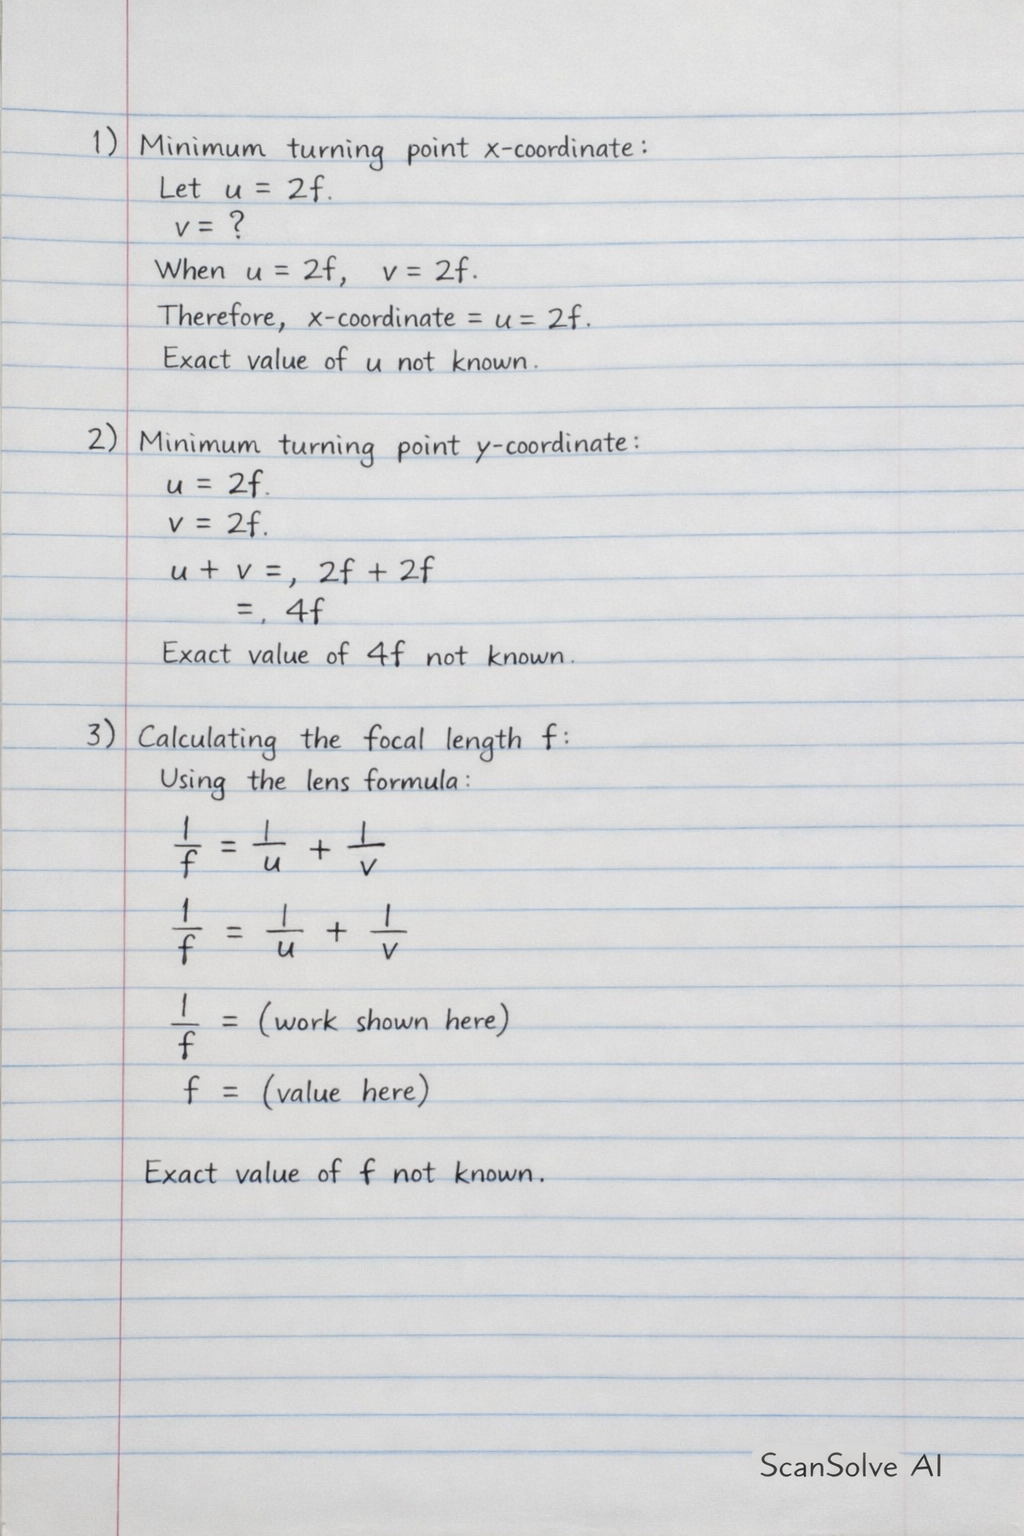 1) Minimum turning point x-coordinate:
Let u = 2f.
v = ?
When u = 2f, v = 2f.
Therefore, x-coordinate = u = 2f.
Exact value of u not known.
2) Minimum turning point y-coordinate:
u = 2f.
v = 2f.
u + v =, 2f + 2f
=, 4f
Exact value of 4f not known.
3) Calculating the focal length f:
Using the lens formula:
1/f = 1/u + 1/v
1/f = 1/u + 1/v
1/f = (work shown here)
f = (value here)
Exact value of f not known.
ScanSolve AI